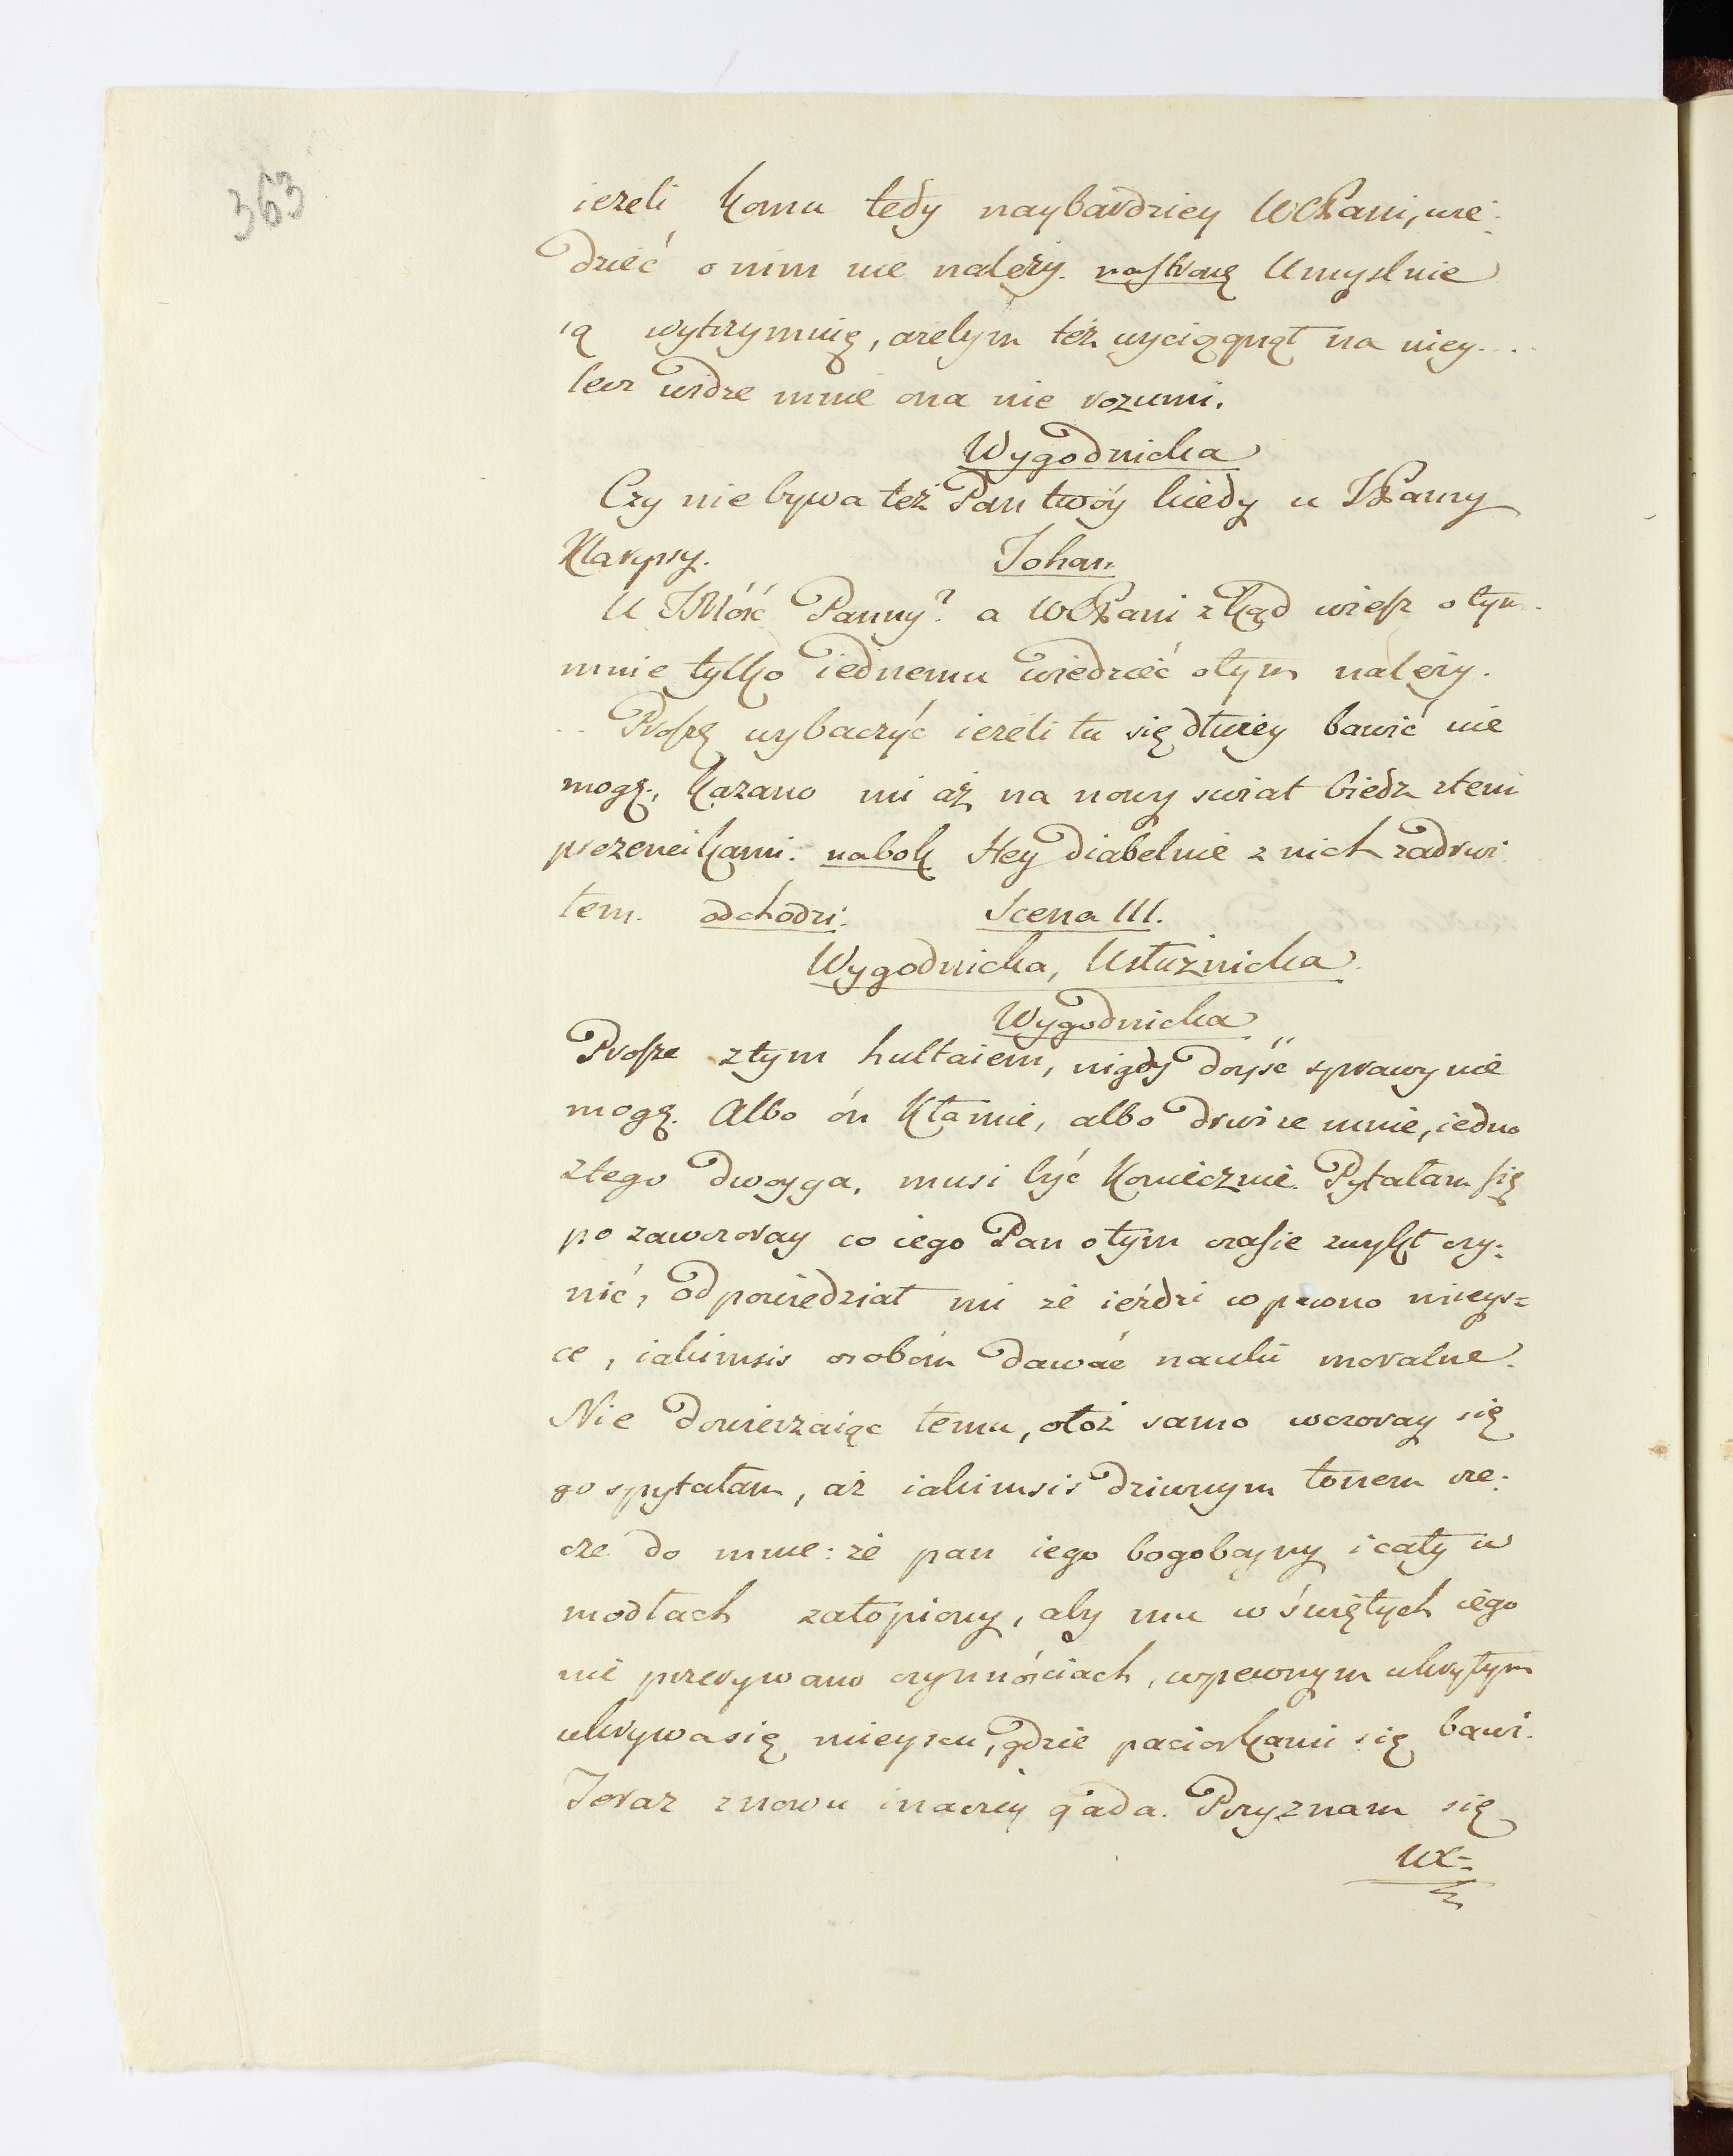 363
ieżeli komu tedy naybardziey WCPani, wie:
dzieć o nim nie należy. nastronę Umyslnie
ią wytrzymuię, ażebym też wyciągnął na niey...
lecz widzę mnie ona nie rozumi.
Wygodnicka
Czy nie bywa też Pan twóy kiedy u JPanny
Klaryssy. Johan
U JMość Panny? a WCPani zkąd wiesz o tym.
mnie tylko iednemu wiedzieć o tym należy.
.. Proszę wybaczyć ieżeli tu się dłużey bawić nie
mogę, kazano mi aż na nowy swiat biedz ztemi
nabok Hey diabelnie z nich zadrwi
łem. odchodzi. Scena III.
Wygodnicka, Usłużnicka.
Wygodnicka
Prosze ztym hultaiem, nigdy doyść sprawy nie
mogę. Albo ón Kłamie, albo drwi ze mnie, iedno
ztego dwoyga, musi być koniecznie. Pytałam się
po zawczoray co iego Pan o tym czasie zwykł czy:
nić, odpowiedział mi że ieździ w pewno mieys=
ce, iakimsis osobóm dawać nauki moralne.
Nie dowierzaiąc temu, otóż samo wczoray się
go spytałam, aż iakimsis dziwnym tonem rze:
cze do mnie: że pan iego bogoboyny i cały w
modłach zatopiony, aby mu w świętych iego
nie przerywano czynnościach, w pewnym ukrytym
ukrywa się mieyscu, gdzie paciorkami się bawi.
Teraz znowu inaczey gada. Przyznam się
WC=